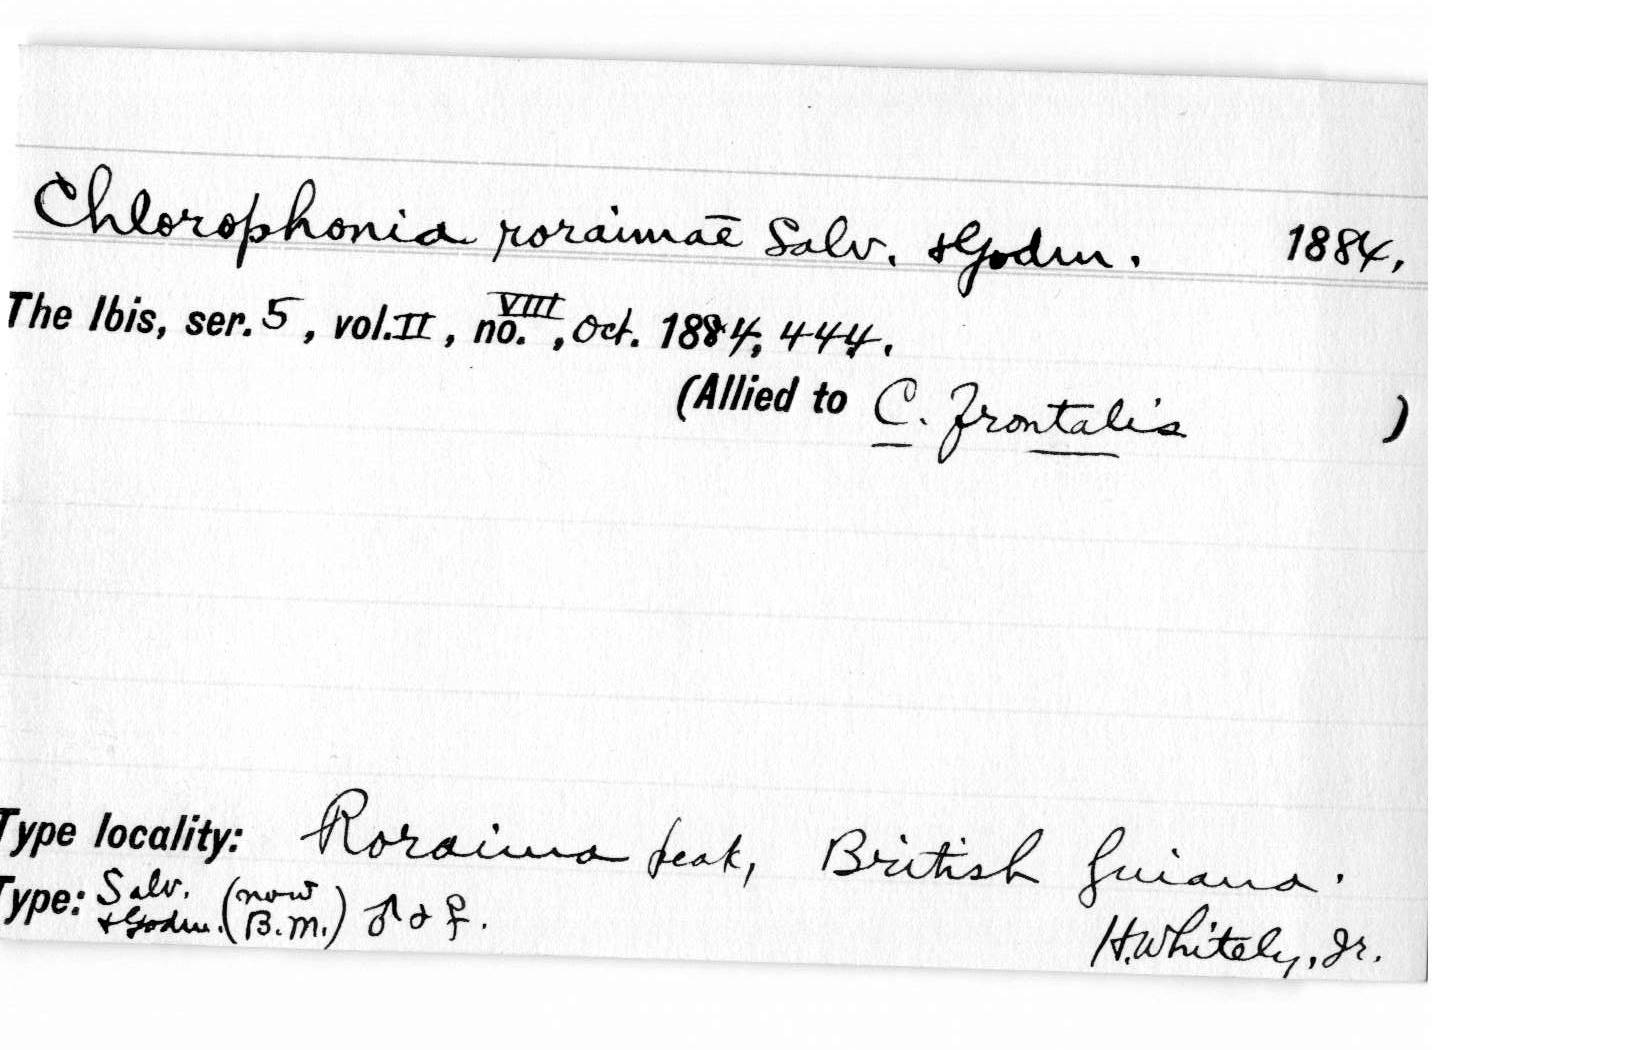 Chlorophonia roraimae Salv. & Godm. 1884.
The Ibis, ser. 5, vol. II, no. VIII, Oct. 1884, 444.
(Allied to C. frontalis )
Type locality: Roraima peak, British Guiana.
Type: Salv. & Godm. (now B.M.) ♂ & ♀.
H. Whitely, Jr.